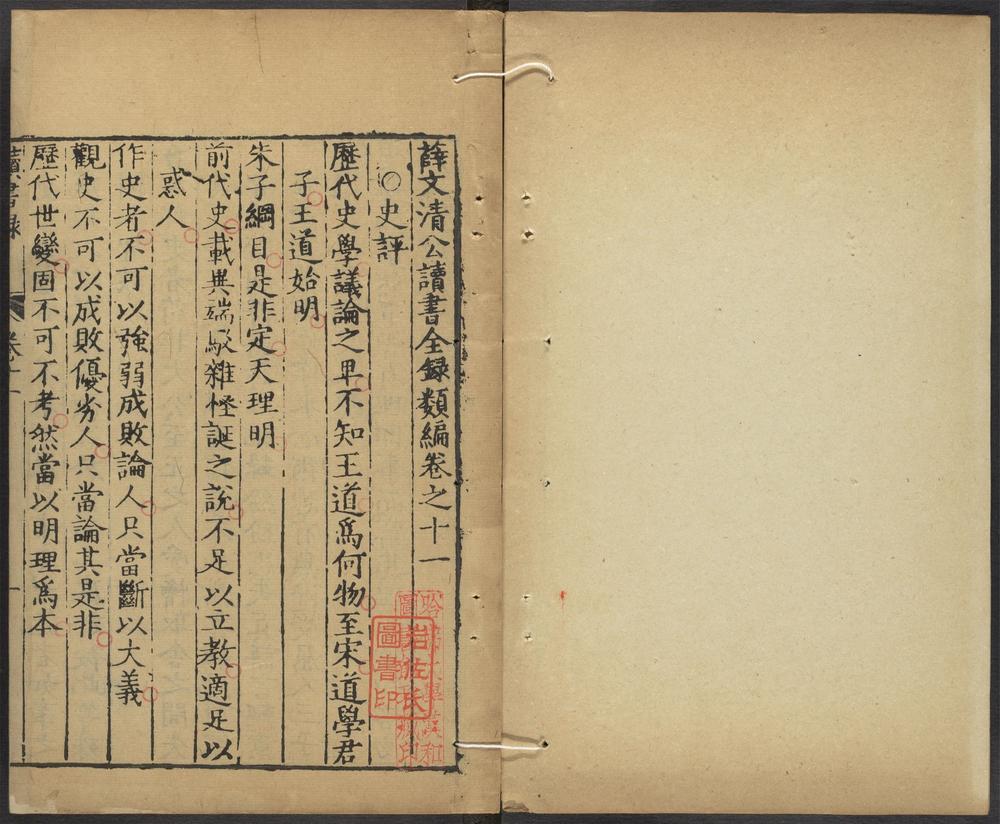 薛文清公讀書全録類編卷之十一
○史評
歷代史學議論之卑不知王道爲何物至宋道學君
子王道始明
朱子綱目是非定天理明
前代史載異端駁雜怪誕之說不足以立教適足以
惑人
作史者不可以強弱成敗論人只當斷以大義
觀史不可以成敗優劣人只當論其是非
歷代世變固不可不考然當以明理爲本
讀書録
卷十一
一
岩佐氏
圖書印
哈佛大學漢和
圖書館珍藏印